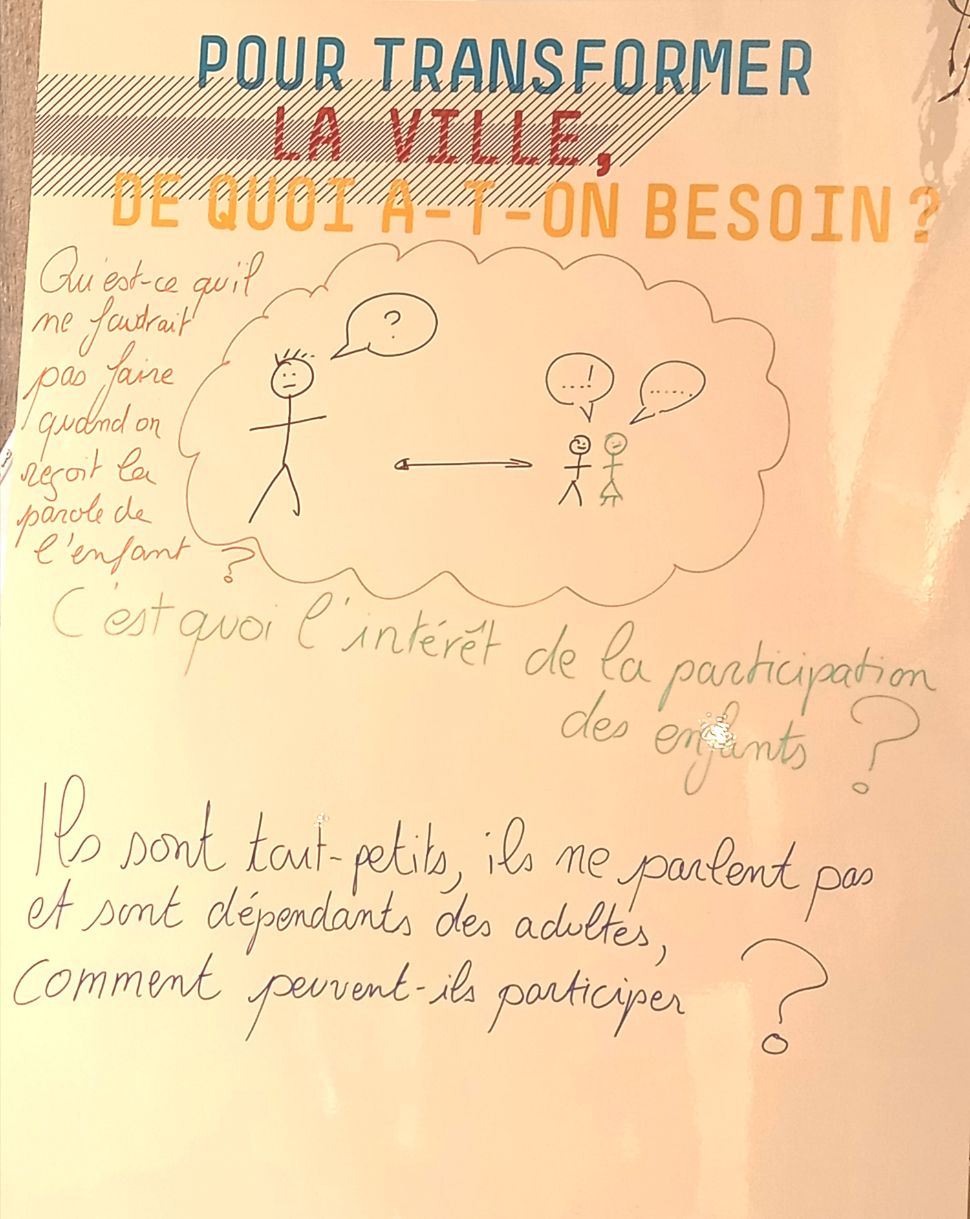 POUR TRANSFORMER
LA VILLE,
DE QUOI A-T-ON BESOIN ?
Qu'est-ce qu'il
ne faudrait
pas faire
quand on
reçoit la
parole de
l'enfant ?
?
....!
......
C'est quoi l'intérêt de la participation
des enfants ?
Ils sont tout-petits, ils ne parlent pas
et sont dépendants des adultes,
comment peuvent-ils participer ?